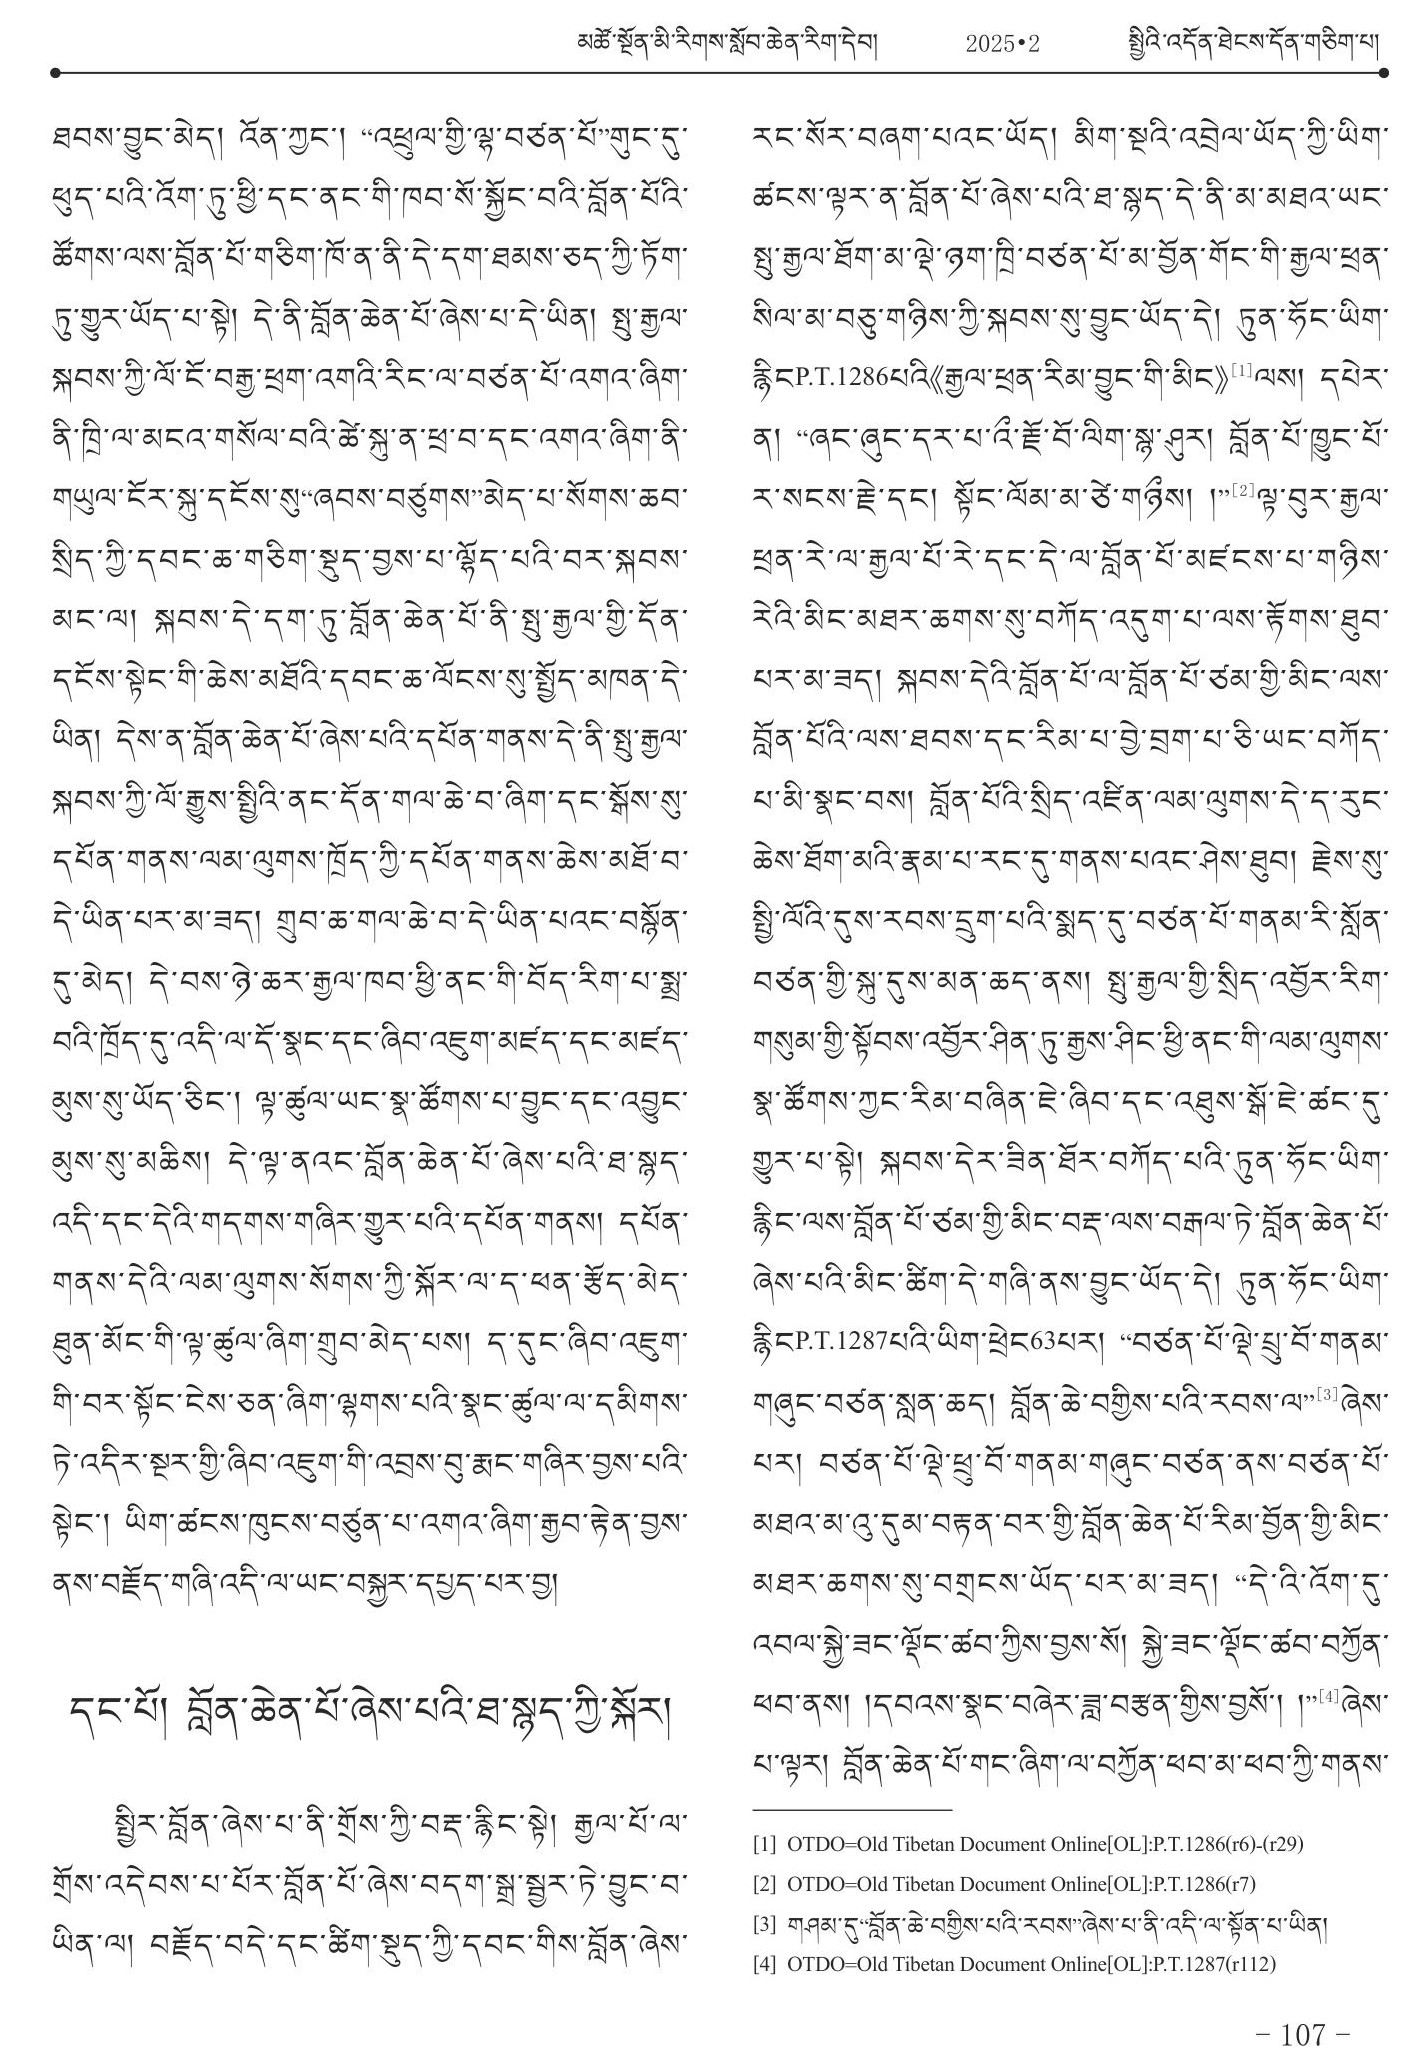 མཚོ་སྔོན་མི་རིགས་སློབ་ཆེན་རིག་དེབ། 2025•2 སྤྱིའི་འདོན་ཐེངས་དོན་གཅིག་པ།
ཐབས་བྱུང་མེད། འོན་ཀྱང་། “འཕྲུལ་གྱི་ལྷ་བཙན་པོ”གུང་དུ་
ཕུད་པའི་འོག་ཏུ་ཕྱི་དང་ནང་གི་ཁབ་སོ་སྐྱོང་བའི་བློན་པོའི་
ཚོགས་ལས་བློན་པོ་གཅིག་ཁོ་ན་ནི་དེ་དག་ཐམས་ཅད་ཀྱི་ཏོག་
ཏུ་གྱུར་ཡོད་པ་སྟེ། དེ་ནི་བློན་ཆེན་པོ་ཞེས་པ་དེ་ཡིན། སྤུ་རྒྱལ་
སྐབས་ཀྱི་ལོ་ངོ་བརྒྱ་ཕྲག་འགའི་རིང་ལ་བཙན་པོ་འགའ་ཞིག་
ནི་ཁྲི་ལ་མངའ་གསོལ་བའི་ཚེ་སྐུ་ན་ཕྲ་བ་དང་འགའ་ཞིག་ནི་
གཡུལ་ངོར་སྐུ་དངོས་སུ“ཞབས་བཙུགས”མེད་པ་སོགས་ཆབ་
སྲིད་ཀྱི་དབང་ཆ་གཅིག་སྡུད་བྱས་པ་ལྷོད་པའི་བར་སྐབས་
མང་ལ། སྐབས་དེ་དག་ཏུ་བློན་ཆེན་པོ་ནི་སྤུ་རྒྱལ་གྱི་དོན་
དངོས་སྟེང་གི་ཆེས་མཐོའི་དབང་ཆ་ལོངས་སུ་སྤྱོད་མཁན་དེ་
ཡིན། དེས་ན་བློན་ཆེན་པོ་ཞེས་པའི་དཔོན་གནས་དེ་ནི་སྤུ་རྒྱལ་
སྐབས་ཀྱི་ལོ་རྒྱུས་སྤྱིའི་ནང་དོན་གལ་ཆེ་བ་ཞིག་དང་སྒོས་སུ་
དཔོན་གནས་ལམ་ལུགས་ཁྲོད་ཀྱི་དཔོན་གནས་ཆེས་མཐོ་བ་
དེ་ཡིན་པར་མ་ཟད། གྲུབ་ཆ་གལ་ཆེ་བ་དེ་ཡིན་པའང་བསྙོན་
དུ་མེད། དེ་བས་ཉེ་ཆར་རྒྱལ་ཁབ་ཕྱི་ནང་གི་བོད་རིག་པ་སྨྲ་
བའི་ཁྲོད་དུ་འདི་ལ་དོ་སྣང་དང་ཞིབ་འཇུག་མཛད་དང་མཛད་
མུས་སུ་ཡོད་ཅིང་། ལྟ་ཚུལ་ཡང་སྣ་ཚོགས་པ་བྱུང་དང་འབྱུང་
མུས་སུ་མཆིས། དེ་ལྟ་ནའང་བློན་ཆེན་པོ་ཞེས་པའི་ཐ་སྙད་
འདི་དང་དེའི་གདགས་གཞིར་གྱུར་པའི་དཔོན་གནས། དཔོན་
གནས་དེའི་ལམ་ལུགས་སོགས་ཀྱི་སྐོར་ལ་ད་ཕན་རྩོད་མེད་
ཐུན་མོང་གི་ལྟ་ཚུལ་ཞིག་གྲུབ་མེད་པས། ད་དུང་ཞིབ་འཇུག་
གི་བར་སྟོང་ངེས་ཅན་ཞིག་ལྷགས་པའི་སྣང་ཚུལ་ལ་དམིགས་
ཏེ་འདིར་སྔར་གྱི་ཞིབ་འཇུག་གི་འབྲས་བུ་རྨང་གཞིར་བྱས་པའི་
སྟེང་། ཡིག་ཚངས་ཁུངས་བཙུན་པ་འགའ་ཞིག་རྒྱབ་རྟེན་བྱས་
ནས་བརྗོད་གཞི་འདི་ལ་ཡང་བསྐྱར་དཔྱད་པར་བྱ།
དང་པོ། བློན་ཆེན་པོ་ཞེས་པའི་ཐ་སྙད་ཀྱི་སྐོར།
སྤྱིར་བློན་ཞེས་པ་ནི་གྲོས་ཀྱི་བརྡ་རྙིང་སྟེ། རྒྱལ་པོ་ལ་
གྲོས་འདེབས་པ་པོར་བློན་པོ་ཞེས་བདག་སྒྲ་སྦྱར་ཏེ་བྱུང་བ་
ཡིན་ལ། བརྗོད་བདེ་དང་ཚིག་སྡུད་ཀྱི་དབང་གིས་བློན་ཞེས་
རང་སོར་བཞག་པའང་ཡོད། མིག་སྔའི་འབྲེལ་ཡོད་ཀྱི་ཡིག་
ཚངས་ལྟར་ན་བློན་པོ་ཞེས་པའི་ཐ་སྙད་དེ་ནི་མ་མཐའ་ཡང་
སྤུ་རྒྱལ་ཐོག་མ་ལྡེ་ཉག་ཁྲི་བཙན་པོ་མ་བྱོན་གོང་གི་རྒྱལ་ཕྲན་
སིལ་མ་བཅུ་གཉིས་ཀྱི་སྐབས་སུ་བྱུང་ཡོད་དེ། ཏུན་ཧོང་ཡིག་
རྙིང་P.T.1286པའི《རྒྱལ་ཕྲན་རིམ་བྱུང་གི་མིང》[1]ལས། དཔེར་
ན། “ཞང་ཞུང་དར་པ་འྀ་རྗོ་བོ་ལིག་སྙ་ཤུར། བློན་པོ་ཁྱུང་པོ་
ར་སངས་རྗེ་དང། སྟོང་ལོམ་མ་ཙེ་གཉྀས། །”[2]ལྟ་བུར་རྒྱལ་
ཕྲན་རེ་ལ་རྒྱལ་པོ་རེ་དང་དེ་ལ་བློན་པོ་མཛངས་པ་གཉིས་
རེའི་མིང་མཐར་ཆགས་སུ་བཀོད་འདུག་པ་ལས་རྟོགས་ཐུབ་
པར་མ་ཟད། སྐབས་དེའི་བློན་པོ་ལ་བློན་པོ་ཙམ་གྱི་མིང་ལས་
བློན་པོའི་ལས་ཐབས་དང་རིམ་པ་བྱེ་བྲག་པ་ཅི་ཡང་བཀོད་
པ་མི་སྣང་བས། བློན་པོའི་སྲིད་འཛིན་ལམ་ལུགས་དེ་ད་རུང་
ཆེས་ཐོག་མའི་རྣམ་པ་རང་དུ་གནས་པའང་ཤེས་ཐུབ། རྗེས་སུ་
སྤྱི་ལོའི་དུས་རབས་དྲུག་པའི་སྨད་དུ་བཙན་པོ་གནམ་རི་སློན་
བཙན་གྱི་སྐུ་དུས་མན་ཆད་ནས། སྤུ་རྒྱལ་གྱི་སྲིད་འབྱོར་རིག་
གསུམ་གྱི་སྟོབས་འབྱོར་ཤིན་ཏུ་རྒྱས་ཤིང་ཕྱི་ནང་གི་ལམ་ལུགས་
སྣ་ཚོགས་ཀྱང་རིམ་བཞིན་ཇེ་ཞིབ་དང་འཐུས་སྒོ་ཇེ་ཚང་དུ་
གྱུར་པ་སྟེ། སྐབས་དེར་ཟིན་ཐོར་བཀོད་པའི་ཏུན་ཧོང་ཡིག་
རྙིང་ལས་བློན་པོ་ཙམ་གྱི་མིང་བརྡ་ལས་བརྒལ་ཏེ་བློན་ཆེན་པོ་
ཞེས་པའི་མིང་ཚིག་དེ་གཞི་ནས་བྱུང་ཡོད་དེ། ཏུན་ཧོང་ཡིག་
རྙིང་P.T.1287པའི་ཡིག་ཕྲེང63པར། “བཙན་པོ་ལྡེ་པྲུ་བོ་གནམ་
གཞུང་བཙན་སླན་ཆད། བློན་ཆེ་བགྱིས་པའི་རབས་ལ”[3]ཞེས་
པར། བཙན་པོ་ལྡེ་ཕྲུ་བོ་གནམ་གཞུང་བཙན་ནས་བཙན་པོ་
མཐའ་མ་འུ་དུམ་བརྟན་བར་གྱི་བློན་ཆེན་པོ་རིམ་བྱོན་གྱི་མིང་
མཐར་ཆགས་སུ་བགྲངས་ཡོད་པར་མ་ཟད། “དེ་འི་འོག་དུ་
འབལ་སྐྱེ་ཟང་ལྡོང་ཚབ་ཀྱིས་བྱས་སོ། སྐྱེ་ཟང་ལྡོང་ཚབ་བཀྱོན་
ཕབ་ནས། །དབའས་སྣང་བཞེར་ཟླ་བརྩན་གྱིས་བྱསོ་། །”[4]ཞེས་
པ་ལྟར། བློན་ཆེན་པོ་གང་ཞིག་ལ་བཀྱོན་ཕབ་མ་ཕབ་ཀྱི་གནས་
[1] OTDO=Old Tibetan Document Online[OL]:P.T.1286(r6)-(r29)
[2] OTDO=Old Tibetan Document Online[OL]:P.T.1286(r7)
[3] གཤམ་དུ“བློན་ཆེ་བགྱིས་པའི་རབས”ཞེས་པ་ནི་འདི་ལ་སྟོན་པ་ཡིན།
[4] OTDO=Old Tibetan Document Online[OL]:P.T.1287(r112)
– 107 –